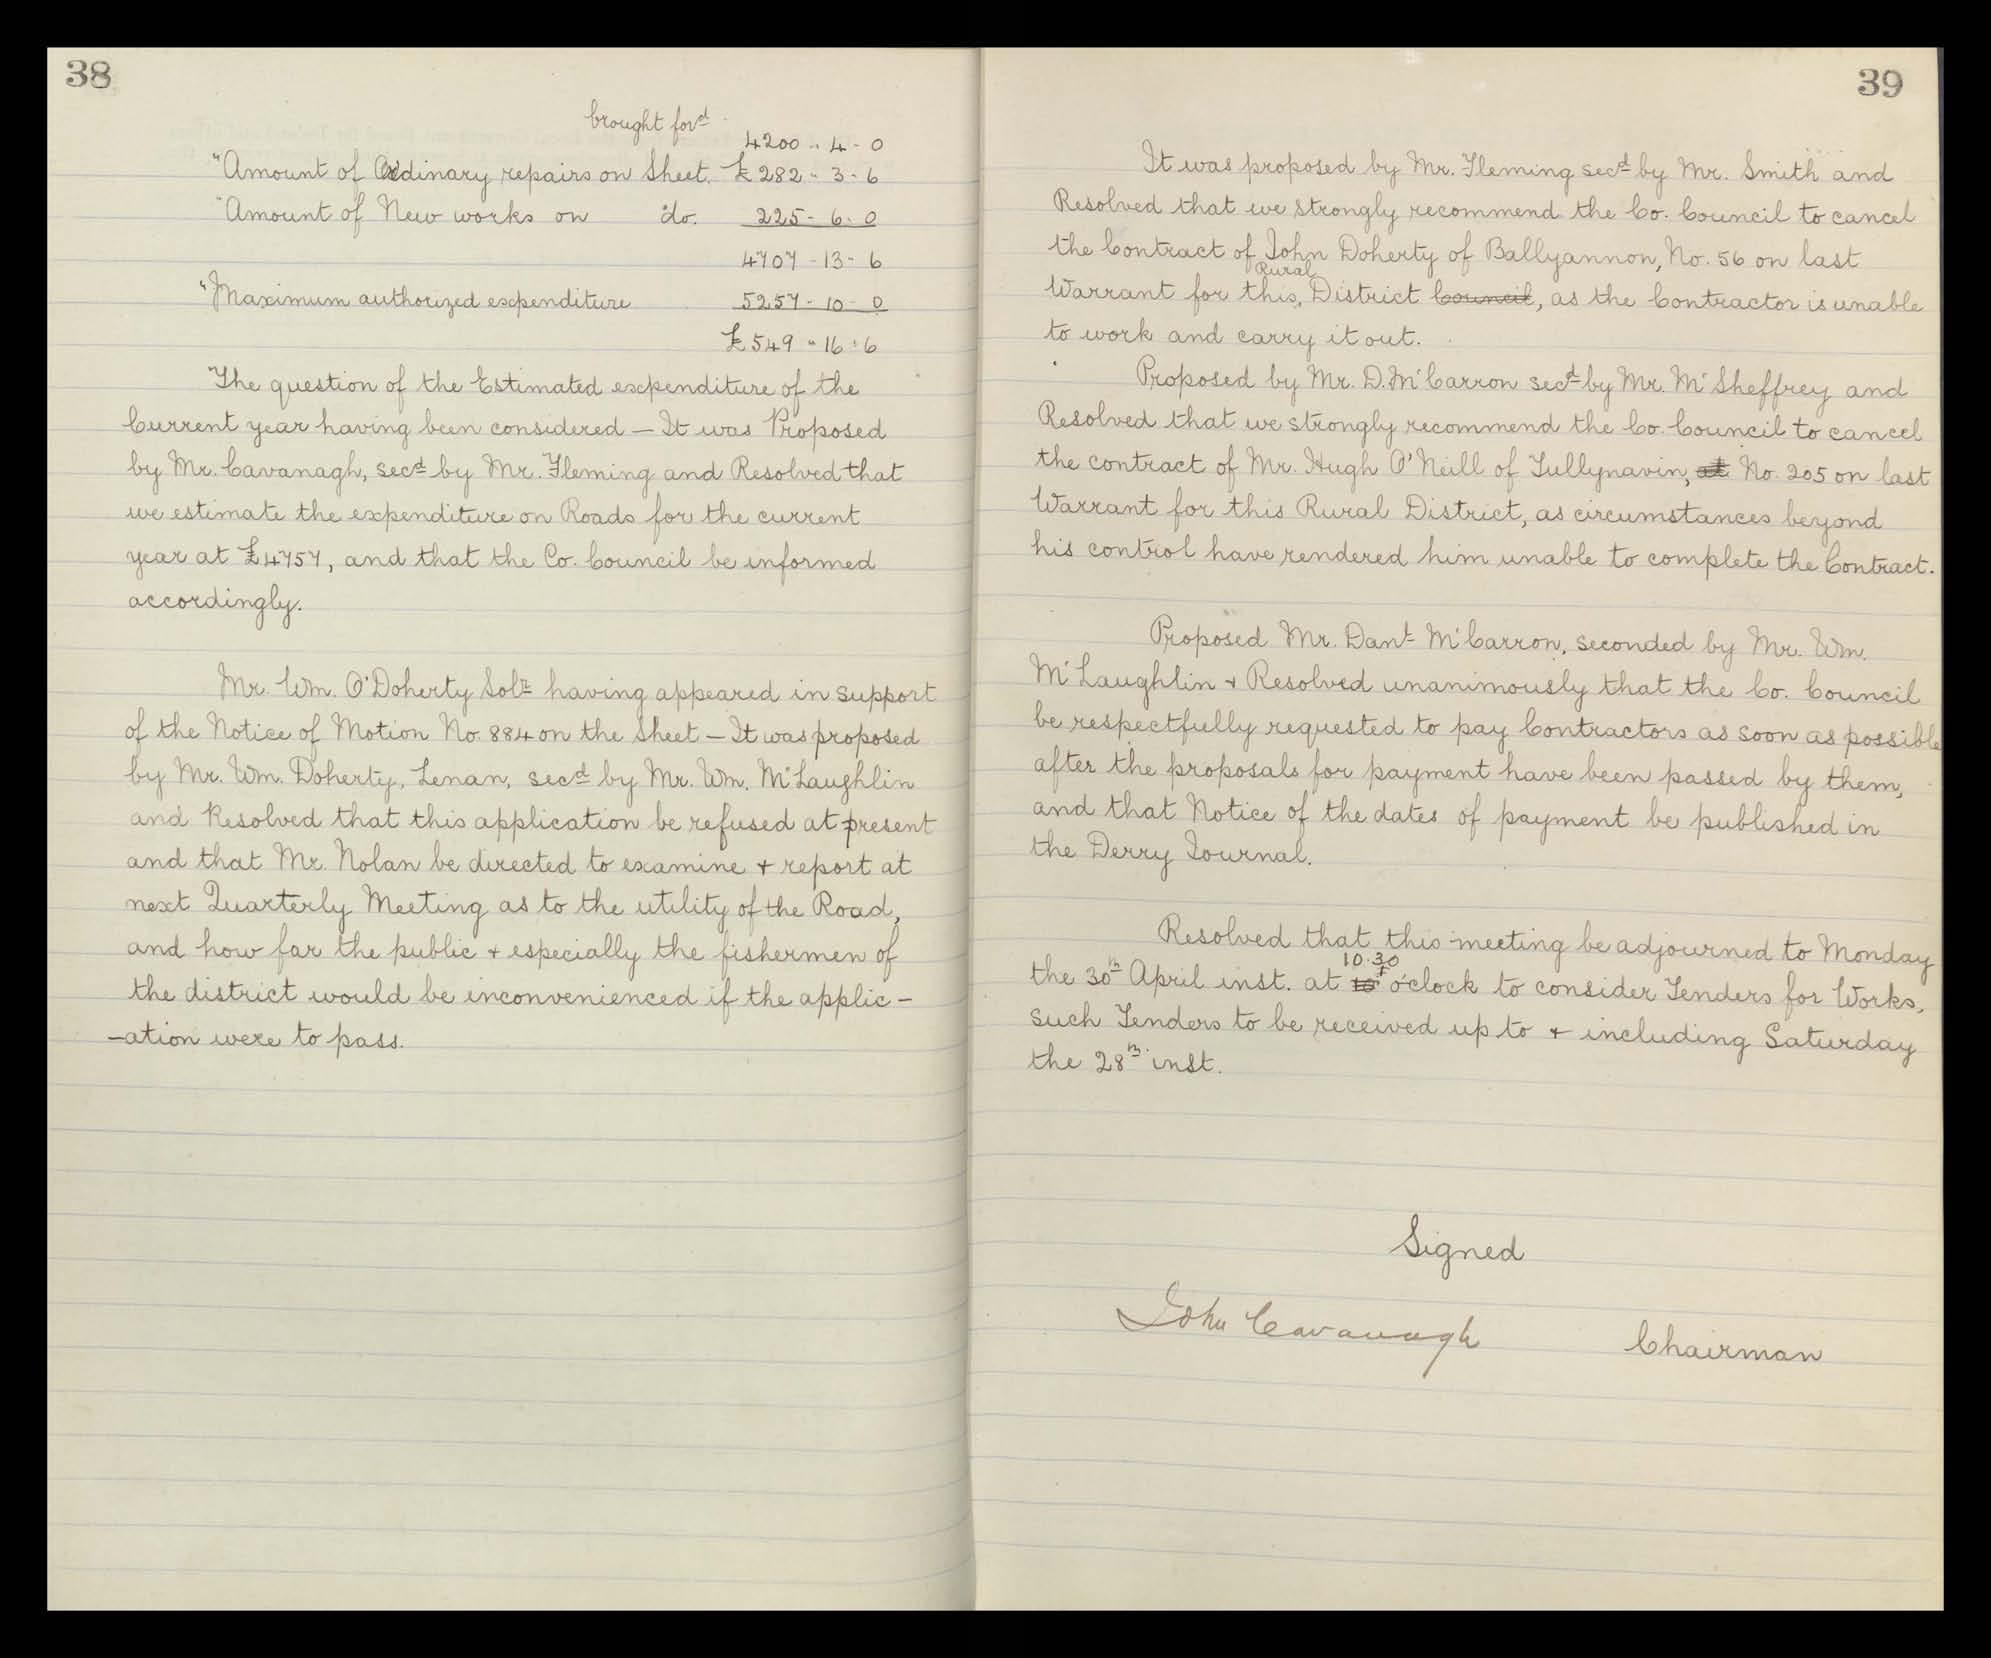 38
brought ford
4200 " 4 - 0
"Amount of Ordinary repairs on Sheet. £282 " 3 - 6
"Amount of New works on do. 225 - 6 - 0
4707 - 13 - 6
"Maximum authorized expenditure 5257 - 10 - 0
£549 " 16 : 6
The question of the Estimated expenditure of the
Current year having been considered — It was Proposed
by Mr. Cavanagh, secd by Mr. Fleming and Resolved that
we estimate the expenditure on Roads for the current
year at £4757, and that the Co. Council be informed
accordingly.
Mr. Wm. O'Doherty Solr having appeared in support
of the Notice of Motion No. 884 on the Sheet — It was proposed
by Mr. Wm. Doherty, Lenan, secd by Mr. Wm. McLaughlin
and Resolved that this application be refused at present
and that Mr. Nolan be directed to examine + report at
next Quarterly Meeting as to the utility of the Road,
and how far the public + especially the fishermen of
the district would be inconvenienced if the applic-
-ation were to pass.
39
It was proposed by Mr. Fleming secd by Mr. Smith and
Resolved that we strongly recommend the Co. Council to cancel
the Contract of John Doherty of Ballyannon, No. 56 on last
Rural
Warrant for this, District Council, as the Contractor is unable
to work and carry it out.
Proposed by Mr. D. McCarron secd by Mr. McSheffrey and
Resolved that we strongly recommend the Co. Council to cancel
the contract of Mr. Hugh O'Neill of Tullynavin, at No. 205 on last
Warrant for this Rural District, as circumstances beyond
his control have rendered him unable to complete the Contract.
Proposed Mr. Danl McCarron, seconded by Mr. Wm.
McLaughlin + Resolved unanimously that the Co. Council
be respectfully requested to pay Contractors as soon as possible
after the proposals for payment have been passed by them,
and that Notice of the dates of payment be published in
the Derry Journal.
Resolved that this meeting be adjourned to Monday
10.30
the 30th April inst. at 10 o'clock to consider Tenders for Works,
such Tenders to be received up to + including Saturday
the 28th inst.
Signed
John Cavanagh Chairman